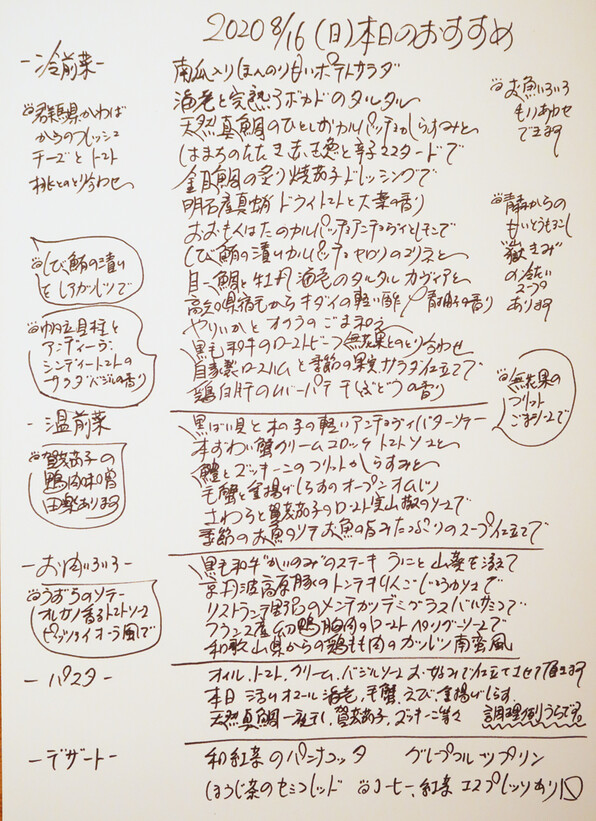 2020 8/16 (日) 本日のおすすめ
-冷前菜-
南瓜入りほんのり甘いポテトサラダ
海老と完熟アボカドのタルタル
天然真鯛のひとしおカルパッチョからすみと
はまちのたたき 赤玉葱と辛子マスタードで
金目鯛の炙り焼茄子ドレッシングで
明石産真蛸 ドライトマトと大葉の香り
おおもんはたのカルパッチョアンチョヴィとレモンで
しび鮪の漬けカルパッチョセロリのマリネと
目一鯛と牡丹海老のタルタル カヴィアと
高知県宿毛からキダイの軽い酢〆 青柚子の香り
やりいかとオクラのごま和え
黒毛和牛のローストビーフ 無花果とのとり合わせ
自家製ロースハムと季節の果実サラダ仕立てで
鶏白肝のムース 干しぶどうの香り
群馬県かわば
からのフレッシュ
チーズとトマト
桃とのとり合わせ
しび鮪の漬け
をレアカツレツで
帆立貝柱と
アンディーブ
シンディートマトの
サラダ バジルの香り
お魚いろいろ
もりあわせ
できます
青森からの
甘いとうもろこし
嶽きみ
の冷たい
スープ
あります
無花果の
フリット
ごまソースで
-温前菜-
黒ばい貝と木の子の軽いアンチョヴィバターソテー
本ずわい蟹クリームコロッケ トマトソースと
鱧とズッキーニのフリットからすみと
毛蟹と釜揚げしらすのオープンオムレツ
さわらと賀茂茄子のロースト実山椒のソースで
季節のお魚のソテーお魚の旨みたっぷりのスープ仕立てで
賀茂茄子の
鴨肉味噌
田楽あります
-お肉いろいろ-
黒毛和牛"かいのみ"のステーキ うにと山葵を添えて
京丹波高原豚のトンテキりんごじょうゆソースで
リストランテ野呂のメンチカツ デミグラスバルサミコで
フランス産 鴨胸肉のロースト ペッパーソースで
和歌山県からの鶏もも肉のカツレツ南蛮風
うずらのソテー
オレガノ香るトマトソース
ピッツァイオーラ風で
-パスタ-
オイル、トマト、クリーム、バジルソース お好みで仕立てさせて頂きます
本日 活オマール海老、毛蟹、えび、釜揚げしらす、
天然真鯛一夜干し、賀茂茄子、ズッキーニ等々 調理例うらです。
-デザート-
和紅茶のパンナコッタ グレープフルーツプリン
ほうじ茶のセミフレッド コーヒー、紅茶 エスプレッソあり